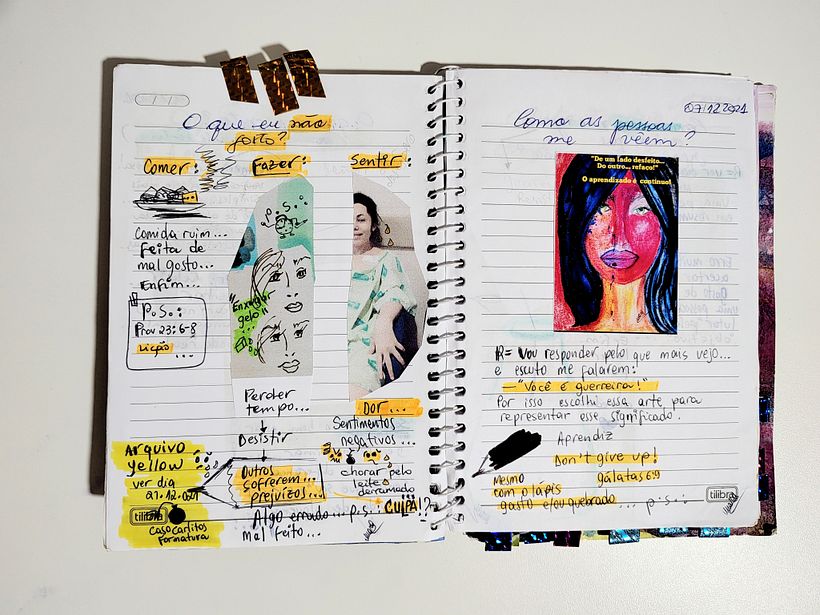 O que eu não
gosto?
Comer:
Fazer:
Sentir:
Comida ruim...
feita de
mal gosto...
Enfim...
P.S.:
Prov 23:6-8
Lição
...
P.S.:
Enxugar
gelo
Perder
tempo...
Desistir
Outros
sofrerem...
prejuízos...
Algo errado... p.s.:
mal feito...
DOR...
Sentimentos
negativos...
chorar pelo
leite
derramado
CULPA!?
Arquivo
yellow
ver dia
tilibra
caso Carlitos
Formatura
07/12/2021
Como as pessoas
me vêem?
"De um lado desfeito...
Do outro... refaço!"
O aprendizado é contínuo!
R= Vou responder pelo que mais vejo...
e escuto me falarem:
— "Você é guerreira!"
Por isso escolhi essa arte para
representar esse significado.
Aprendiz
Don't give up!
gálatas 6:9
Mesmo
com o lápis
gasto e/ou quebrado... p.s.:
tilibra